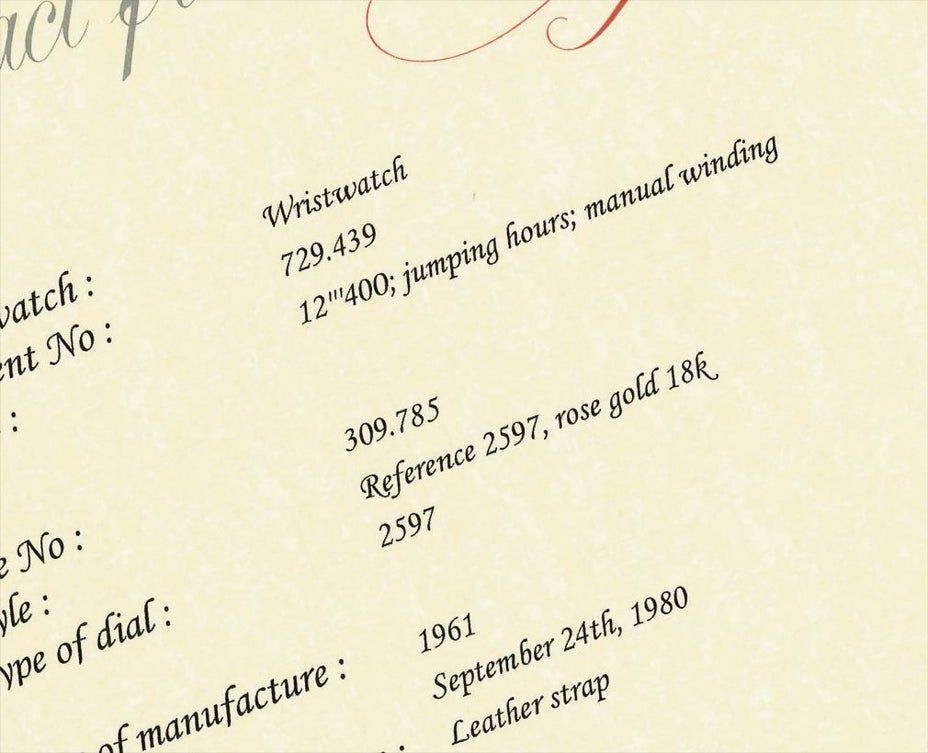 act
watch : Wristwatch
ent No : 729.439
: 12'''400; jumping hours; manual winding
e No : 309.785
yle : Reference 2597, rose gold 18k
ype of dial : 2597
of manufacture : 1961
September 24th, 1980
: Leather strap